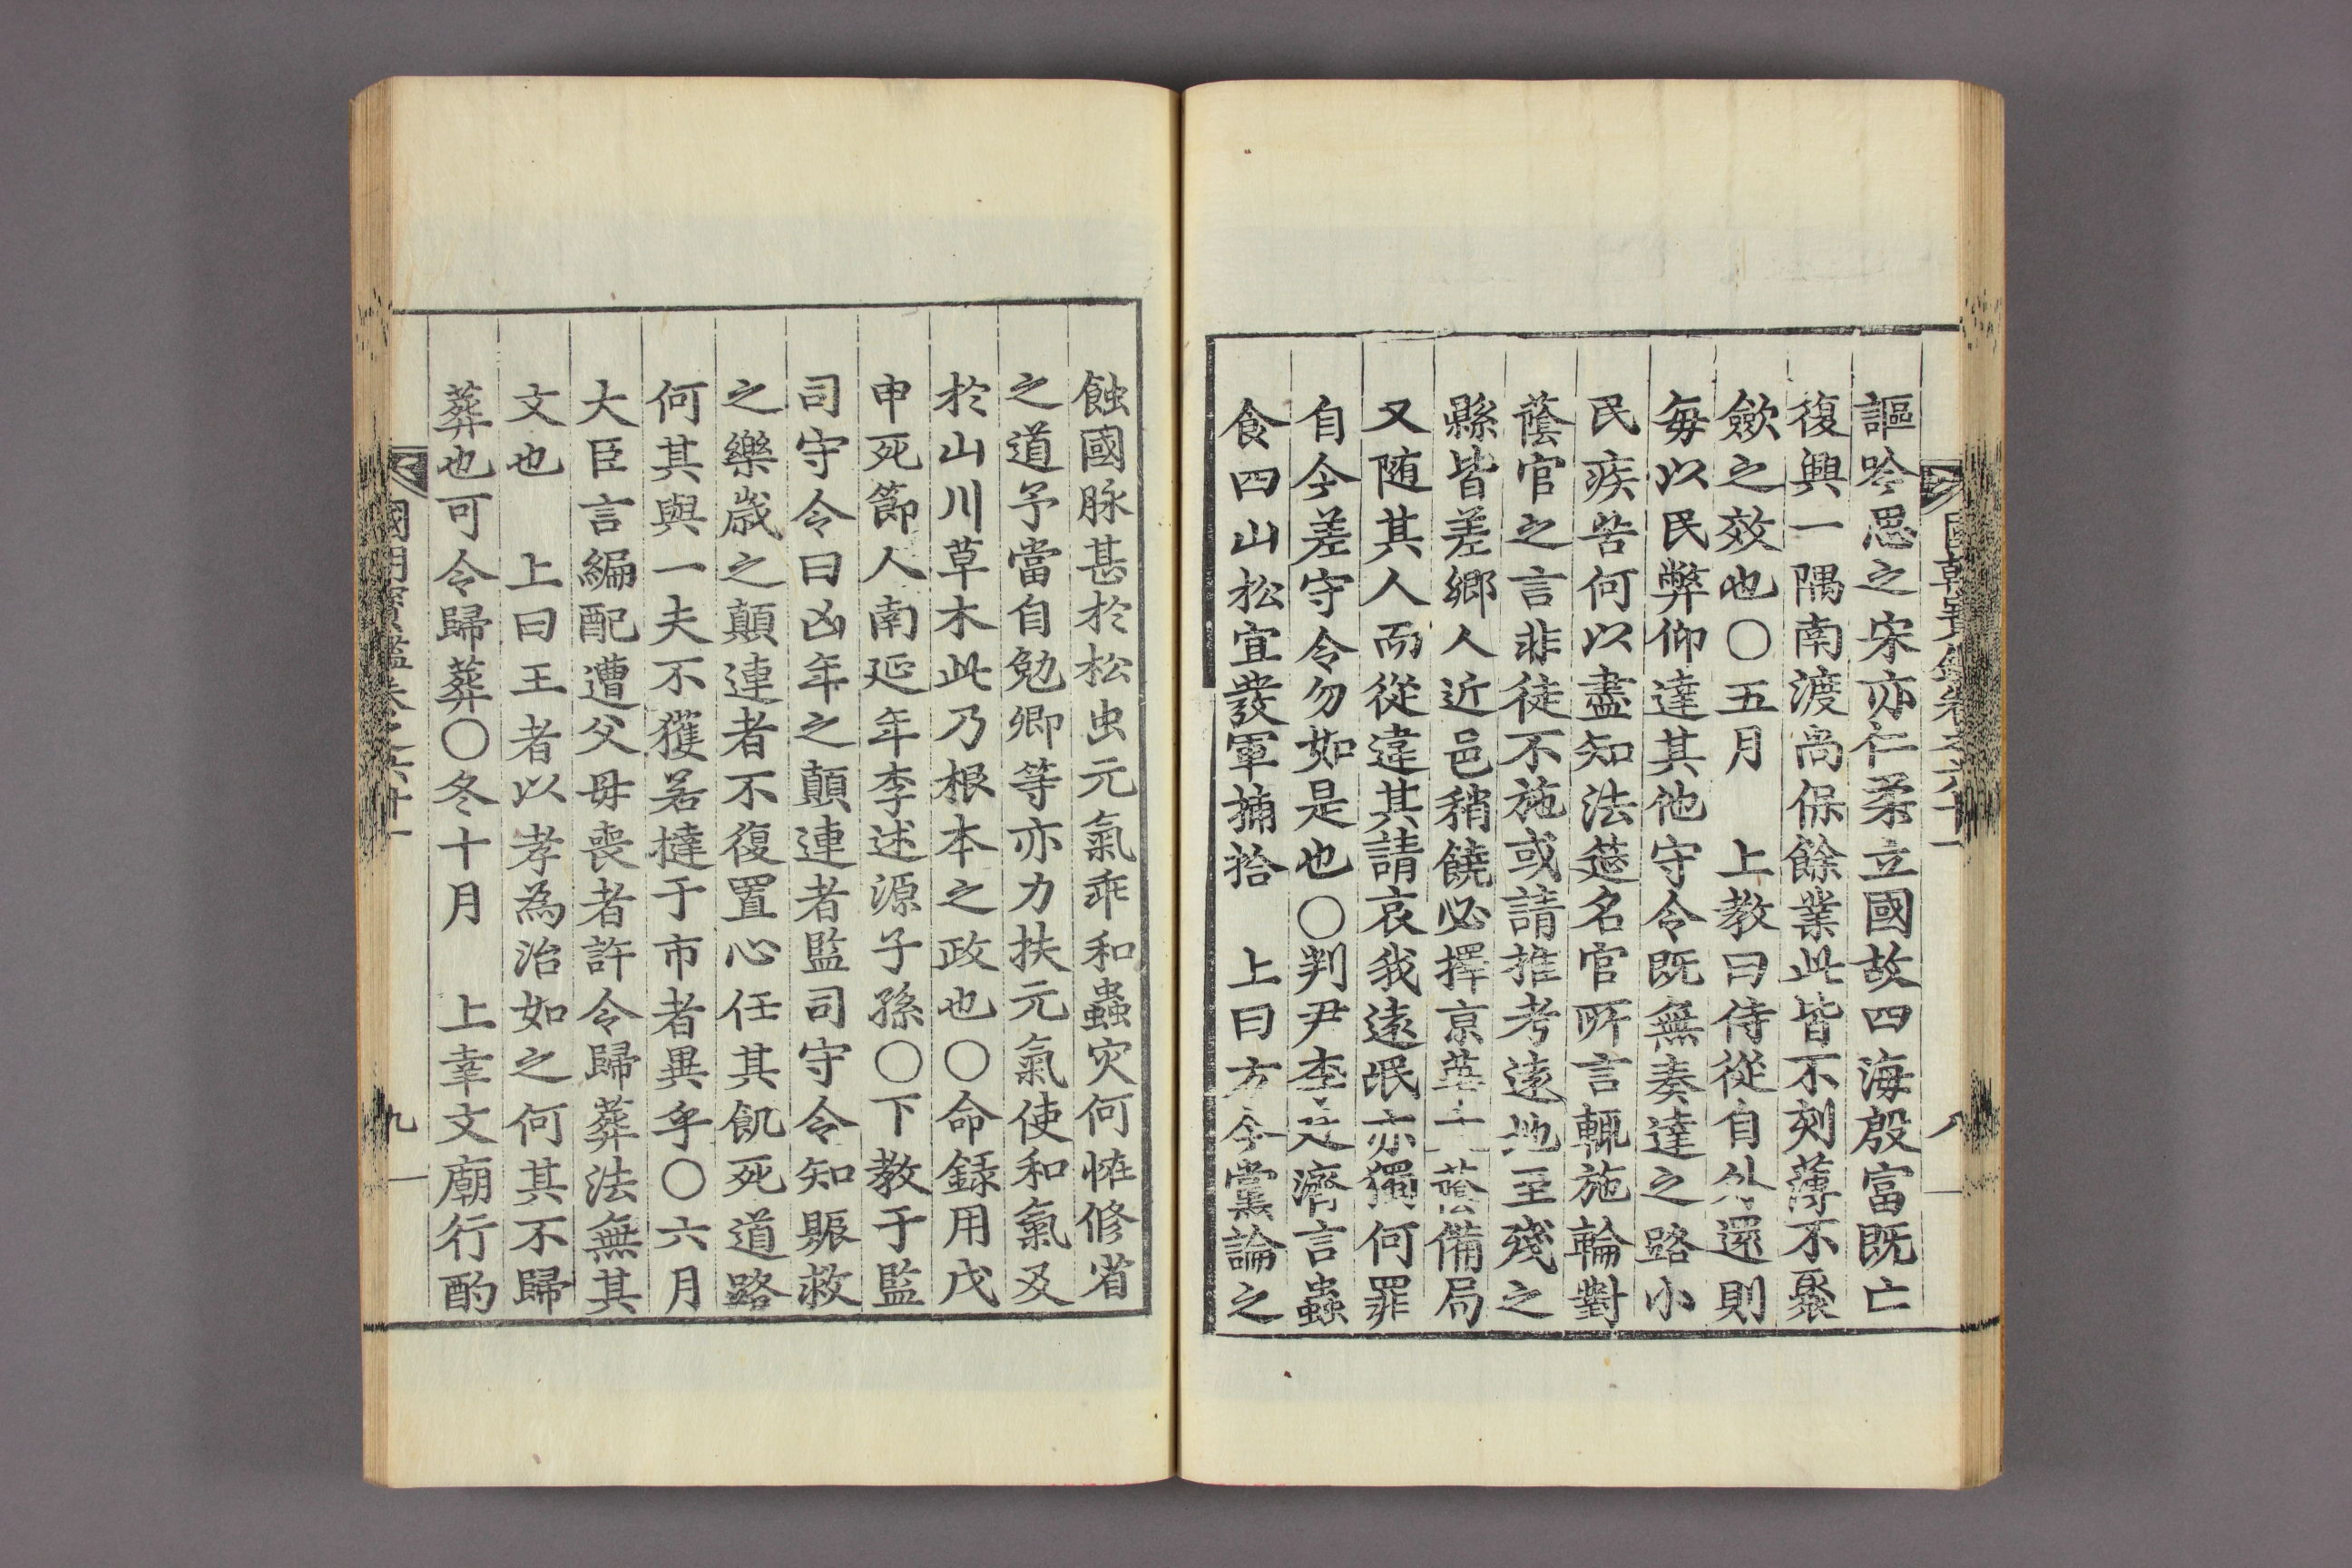 國朝寶鑑卷之六十一 八
謳吟思之宋亦仁柔立國故四海殷富旣亡
復興一隅南渡尙保餘業此皆不刻薄不聚
斂之效也○五月 上敎曰侍從自外還則
每以民弊仰達其他守令旣無奏達之路小
民疾苦何以盡知法筵名官所言輒施輪對
蔭官之言非徒不施或請推考遠地至殘之
縣皆差鄉人近邑稍饒必擇京華士蔭備局
又随其人而從違其請哀我遠氓亦獨何罪
自今差守令勿如是也○判尹李廷濟言蟲
食四山松宜發軍捕拾 上曰方今黨論之
蝕國脉甚於松虫元氣乖和蟲灾何恠修省
之道予當自勉卿等亦力扶元氣使和氣及
於山川草木此乃根本之政也○命錄用戊
申死節人南延年李述源子孫○下敎于監
司守令曰凶年之顚連者監司守令知賑救
之樂歲之顚連者不復置心任其飢死道路
何其與一夫不獲若撻于市者異乎○六月
大臣言編配遭父母喪者許令歸葬法無其
文也 上曰王者以孝為治如之何其不歸
葬也可令歸葬○冬十月 上幸文廟行酌
國朝寶鑑卷之六十一 九